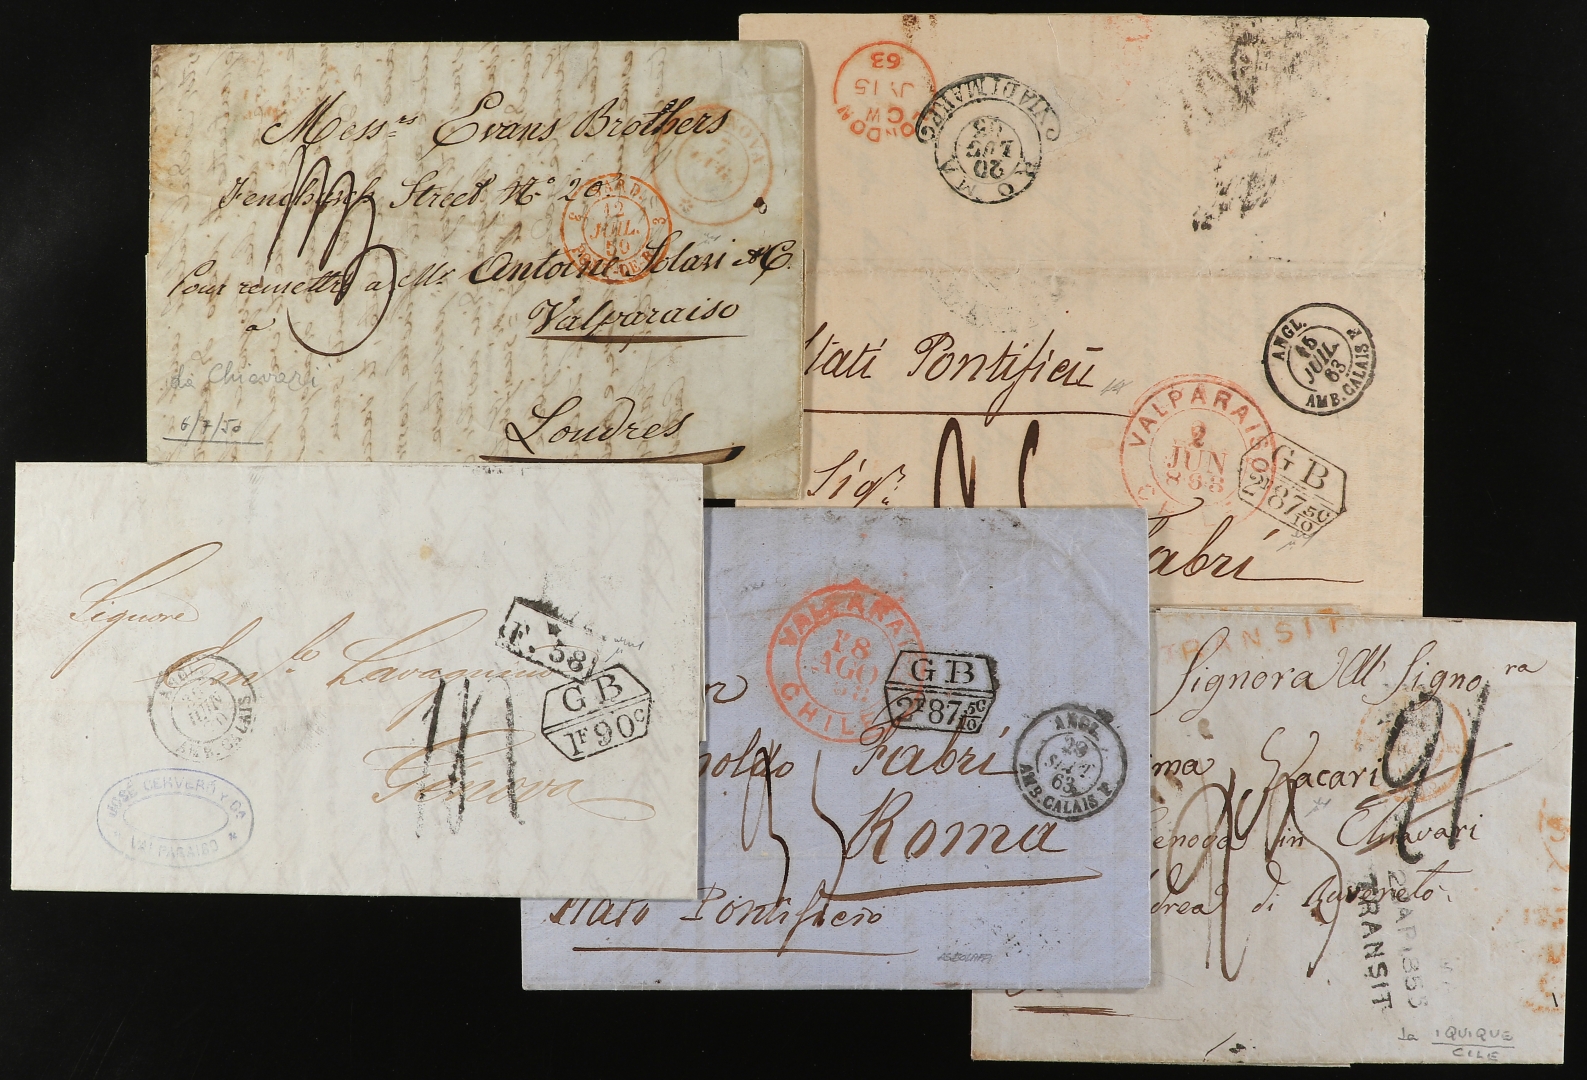 Mess.rs Evans Brothers
Street N.o 20
Pour remettre a Mr. Antoine Solari & C.
a Valparaiso
Londres
da Chiavari
6/7/50
12
JUIL.
50
LONDON
CW
JY 15
63
ROMA
20
LUG
63
Stati Pontificii
Sigr.
Fabri
ANGL.
15
JUIL.
63
AMB. CALAIS
VALPARAISO
2
JUN
CHILE
GB
2F87 5C/10
Signore
Lavagnino
Genova
F. 58
GB
1F90c
AMB. CALAIS
JOSÉ CERVERO Y CA
VALPARAISO
VALPARAISO
18
AGO
CHILE
GB
2F87 5C/10
ANGL.
29
SEPT
63
AMB. CALAIS
Fabri
Roma
Stato Pontificio
TRANSIT
Signora All' Signora
Zacari
in Chiavari
di Rovereto
21
2 AP 1855
TRANSIT
da IQUIQUE
CILE